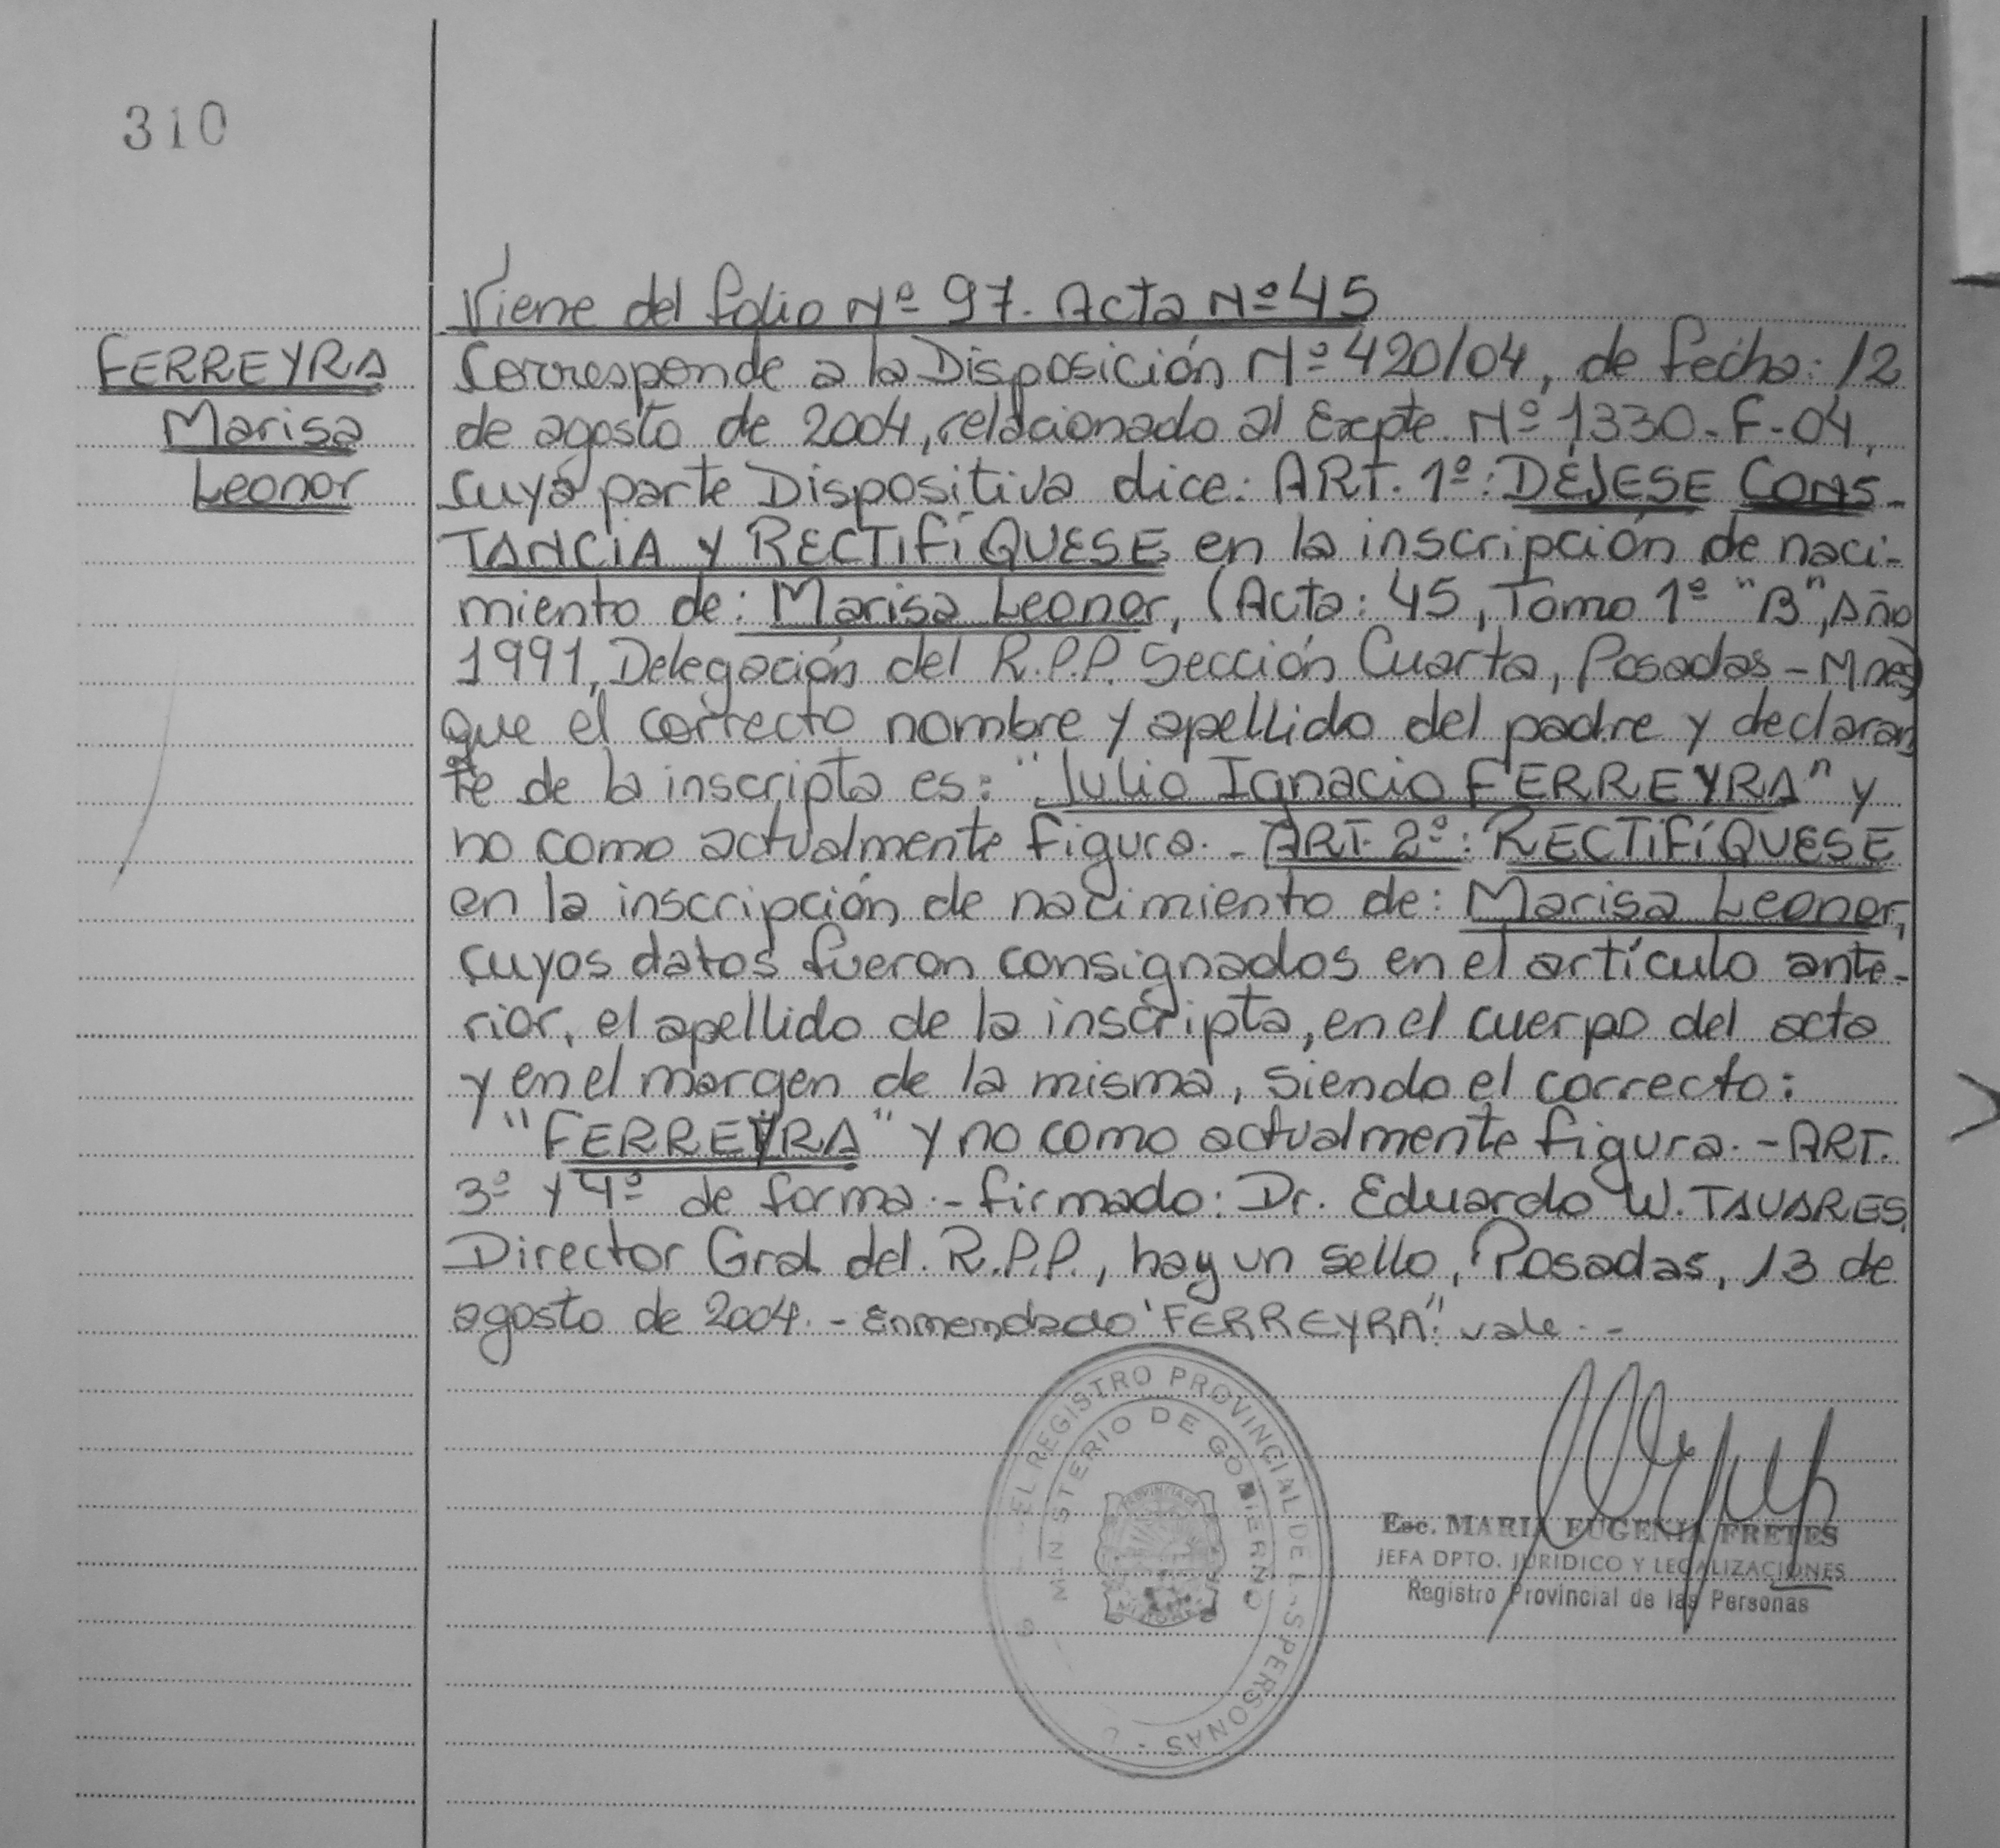 310
Viene del folio Nº 97. Acta Nº 45
FERREYRA
Marisa
Leonor
Corresponde a la Disposición Nº 420/04, de fecha: 12
de agosto de 2004, relacionado al Expte. Nº 1330-F-04,
cuya parte Dispositiva dice: ART. 1º: DÉJESE CONS-
TANCIA Y RECTIFÍQUESE en la inscripción de naci-
miento de: Marisa Leonor, (Acta: 45, Tomo 1º "B", Año
1991, Delegación del R.P.P. Sección Cuarta, Posadas - Mnes)
que el correcto nombre y apellido del padre y declaran
te de la inscripta es: "Julio Ignacio FERREYRA" y
no como actualmente figura. - ART. 2º: RECTIFÍQUESE
en la inscripción de nacimiento de: Marisa Leonor,
cuyos datos fueron consignados en el artículo ante-
rior, el apellido de la inscripta, en el cuerpo del acta
y en el margen de la misma, siendo el correcto:
"FERREYRA" y no como actualmente figura. - ART.
3º y 4º de forma. - firmado: Dr. Eduardo W. TAVARES,
Director Gral del R.P.P., hay un sello, Posadas, 13 de
agosto de 2004. - Enmendado "FERREYRA": vale. -
EL REGISTRO PROVINCIAL DE L S PERSONAS
MINISTERIO DE GOBIERNO
PROVINCIA DE
MISIONES
Esc. MARIA EUGENIA FRETES
JEFA DPTO. JURIDICO Y LEGALIZACIONES
Registro Provincial de las Personas